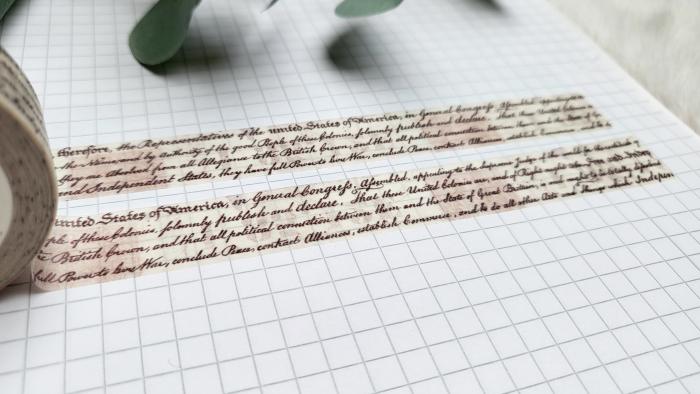 Therefore, the Representatives of the united States of America, in General Congress, Assembled, appealing
the Name, and by Authority of the good People of these Colonies, solemnly publish and declare, That these United
they are Absolved from all Allegiance to the British Crown, and that all political connection
Independent States, they have full Power to levy War, conclude Peace, contract Alliances
united States of America, in General Congress, Assembled, appealing to the Supreme Judge of the world for the
ple of these Colonies, solemnly publish and declare, That these United Colonies are, and of Right ought to be Free and
British Crown, and that all political connection between them and the State of Great Britain, is and ought to be totally
full Power to levy War, conclude Peace, contract Alliances, establish Commerce, and to do all other Acts and Things which Indepen